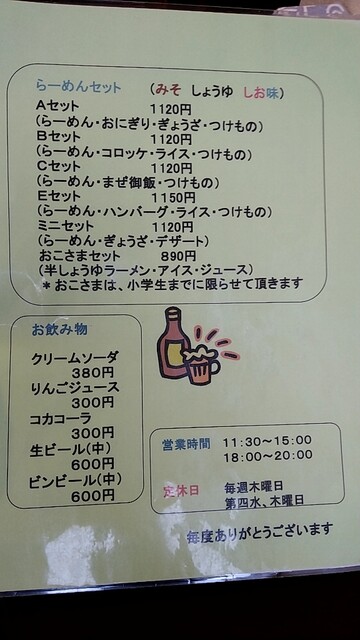 らーめんセット （みそ しょうゆ しお味）
Aセット 1120円
(らーめん・おにぎり・ぎょうざ・つけもの)
Bセット 1120円
(らーめん・コロッケ・ライス・つけもの)
Cセット 1120円
(らーめん・まぜ御飯・つけもの)
Eセット 1150円
(らーめん・ハンバーグ・ライス・つけもの)
ミニセット 1120円
(らーめん・ぎょうざ・デザート)
おこさまセット 890円
(半しょうゆラーメン・アイス・ジュース)
＊おこさまは、小学生までに限らせて頂きます
お飲み物
クリームソーダ
380円
りんごジュース
300円
コカコーラ
300円
生ビール(中)
600円
ビンビール(中)
600円
営業時間 11:30～15:00
18:00～20:00
定休日 毎週木曜日
第四水、木曜日
毎度ありがとうございます